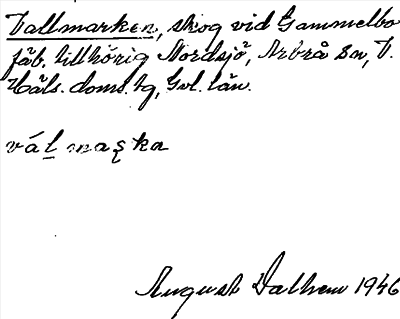 Vallmarken, skog vid Gammelbo
fäb. tillhörig Nordsjö, Arbrå sn, V.
Häls. doms. tg, Gvl. län.
vál maska
August Dalhem 1946